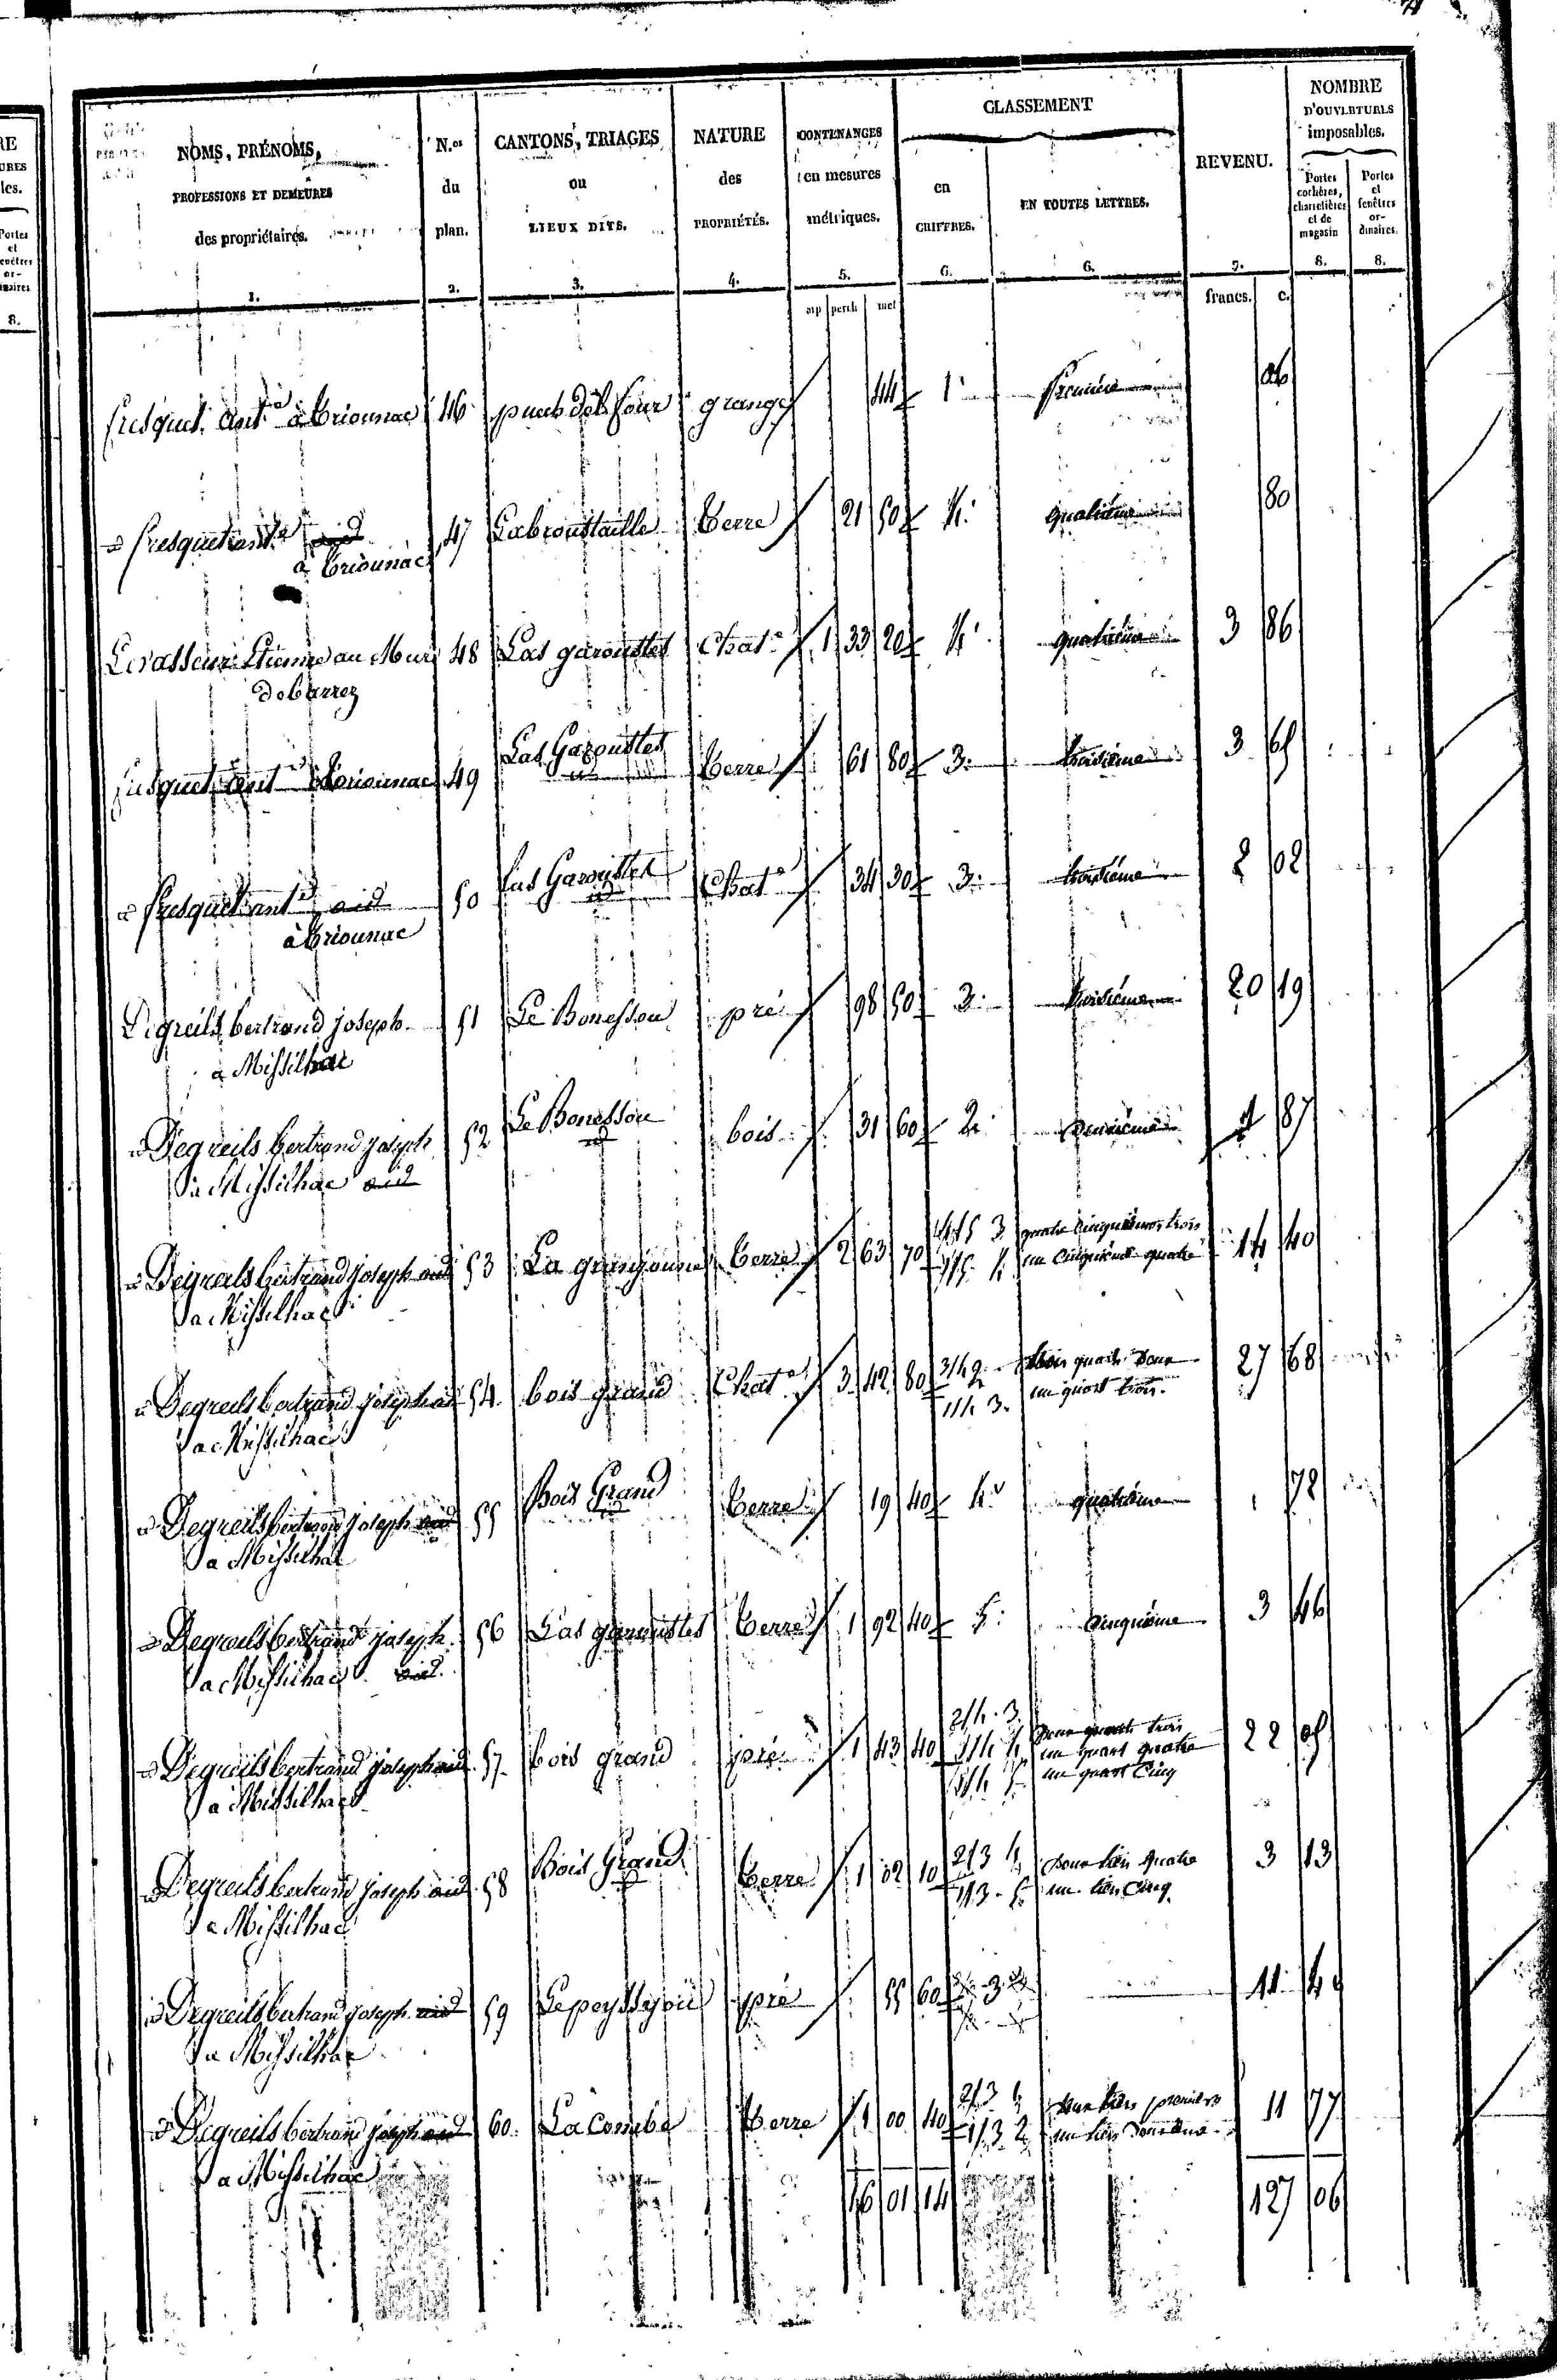 NOMS, PRÉNOMS, PROFESSIONS ET DEMEURES des propriétaires. 1.
N.os du plan. 2.
CANTONS, TRIAGES ou LIEUX DITS. 3.
NATURE des PROPRIÉTÉS. 4.
CONTENANCES en mesures métriques. 5.
CLASSEMENT
en CHIFFRES. 6.
EN TOUTES LETTRES. 6.
REVENU. 7.
NOMBRE D'OUVERTURES imposables.
Portes cochères, charretières et de magasin 8.
Portes et fenêtres ordinaires. 8.
arp perch met francs. c.
fresquet ant.e à Briounac 46 grange 44 1. Première 06
fresquet ant.e 47 Labroustaille Terre 21 50 4. quatrième 80
à Briounac
Levasseur Etienne au Mur 48 Las garoustes Chat.e 1 33 20 4. quatrième 3 86
de barrez
fresquet ant.e à Briounac 49 Las Garoustes Terre 61 80 3. troisième 3
fresquet ant.e 50 Las Garoustes Chat.e 34 30 3. troisième 2 02
à Briounac
Degreils bertrand joseph 51 Le Bonesson pré 98 50 3. troisième 20 19
a Missilhac
Degreils bertrand joseph 52 Le Bonesson bois 31 60 2. deuxième 87
a Missilhac
Degreils bertrand joseph 53 Terre 2 63 70 4/5 3 quatre cinquièmes trois 14 40
a Missilhac 1/5 4 un cinquième quatre
Degreils bertrand joseph 54 bois grand Chat.e 3 42 80 3/4 2 trois quarts deux 27 68
a Missilhac 1/4 3. un quart trois.
Degreils bertrand joseph 55 Bois Grand Terre 19 40 4. quatrième 78
a Missilhac
Degreils bertrand joseph 56 Las garoustes Terre 1 92 40 5. cinquième 3 46
a Missilhac
Degreils bertrand joseph 57 bois grand pré 1 43 40 2/4 3. deux quarts trois 22 05
a Missilhac 1/4 4 un quart quatre
1/4 5 un quart cinq
Degreils bertrand joseph 58 Bois Grand Terre 1 02 10 2/3 4 deux tiers quatre 3 13
a Missilhac 1/3 5 un tiers cinq.
Degreils bertrand joseph 59 pré 55 60 3 11
a Missilhac
Degreils bertrand joseph 60. La Combe Terre 1 00 40 2/3 deux tiers 11 77
a Missilhac 1/3 2 un tiers
16 01 14 127 06